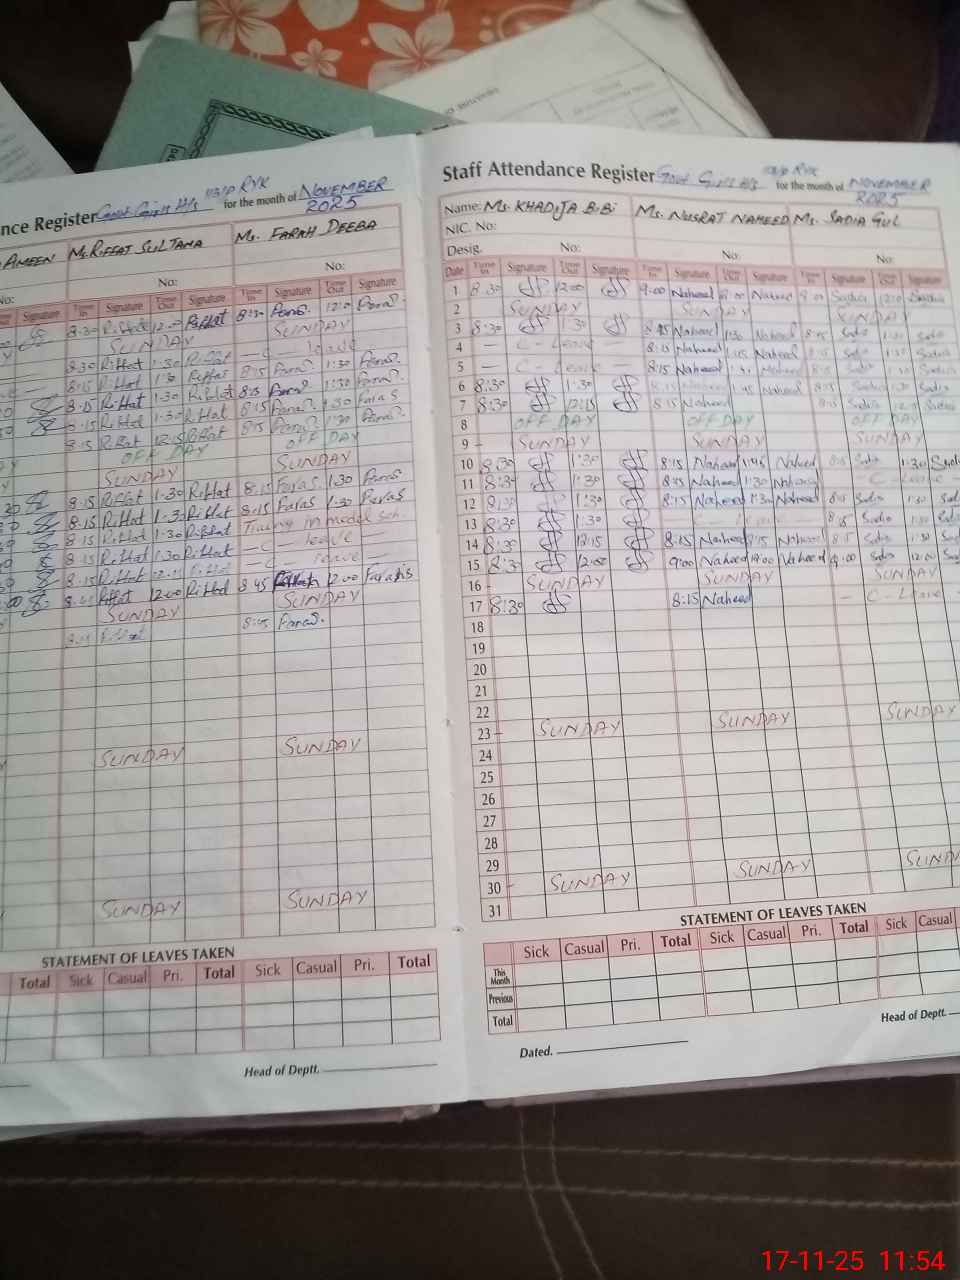 nce Register Govt Girls H/S 113/P RYK for the month of NOVEMBER 2025
AMEEN Ms. RIFFAT SULTANA Ms. FARAH DEEBA
No: No: No:
Out Signature Time In Signature Time Out Signature Time In Signature Time Out Signature
8:30 Riffat 12:00 Riffat 8:30 Faras. 12:0 Faras.
SUNDAY SUNDAY
8:30 Riffat 1:30 Riffat — C — leave
8:15 Riffat 1:30 Riffat 8:15 Faras. 1:30 Faras.
8:15 Riffat 1:30 Riffat 8:15 Faras. 1:30 Faras.
8:15 Riffat 1:30 Riffat 8:15 Faras. 1:30 Faras
8:15 Riffat 12:15 Riffat 8:15 Faras. 1:30 Faras.
OFF DAY OFF DAY
SUNDAY SUNDAY
8:15 Riffat 1:30 Riffat 8:15 Faras 1:30 Faras.
8:15 Riffat 1:30 Riffat 8:15 Faras 1:30 Faras
8:15 Riffat 1:30 Riffat in model sch.
8:15 Riffat 1:30 Riffat — C — leave —
8:15 Riffat Riffat — C leave —
8:45 Riffat 12:00 Riffat 8:45 12:00 Faras
SUNDAY SUNDAY
8:45 Riffat 8:45 Faras.
SUNDAY SUNDAY
SUNDAY SUNDAY
STATEMENT OF LEAVES TAKEN
Total Sick Casual Pri. Total Sick Casual Pri. Total
Head of Deptt.
Staff Attendance Register Govt Girls H/S 113/P RYK for the month of NOVEMBER 2025
Name: Ms. KHADIJA BiBi Ms. NUSRAT NAHEED Ms. SADIA GUL
NIC. No:
Desig. No: No: No:
Date Time In Signature Time Out Signature Time In Signature Time Out Signature Time In Signature Time Out Signature
1 8:30 12:00 9:00 Naheed Naheed 8:00 Sadia 12:0 Sadia
2 SUNDAY SUNDAY SUNDAY
3 8:30 1:30 8:45 Naheed 1:30 Naheed 8:15 Sadia 1:30 Sadia
4 — C - Leave — 8:15 Naheed 1:45 Naheed 8:15 Sadia 1:30 Sadia
5 — C - Leave — 8:15 Naheed Naheed 8:15 Sadia 1:30 Sadia
6 8:30 1:30 8:15 Naheed 1:45 Naheed 8:15 Sadia 1:30 Sadia
7 8:30 12:15 8:15 Naheed 8:15 Sadia Sadia
8 OFF DAY OFF DAY OFF DAY
9 SUNDAY SUNDAY SUNDAY
10 8:30 1:30 8:15 Naheed 1:45 Naheed 8:15 Sadia 1:30 Sadia
11 8:30 1:30 8:45 Naheed 1:30 Naheed — C - Leave —
12 8:30 1:30 8:15 Naheed 1:30 Naheed 8:15 Sadia 1:30 Sad
13 8:30 1:30 — C - Leave — 8:15 Sadia 1:30 Sadia
14 8:30 12:15 8:15 Naheed Naheed 8:15 Sadia 1:30 Sad
15 8:30 12:00 9:00 Naheed Naheed 9:00 Sadia 12:00 Sad
16 SUNDAY SUNDAY SUNDAY
17 8:30 8:15 Naheed — C - Leave —
18
19
20
21
22
23 SUNDAY SUNDAY SUNDAY
24
25
26
27
28
29
30 SUNDAY SUNDAY SUNDA
31
STATEMENT OF LEAVES TAKEN
Sick Casual Pri. Total Sick Casual Pri. Total Sick Casual
This Month
Previous
Total
Dated. Head of Deptt.
17-11-25 11:54